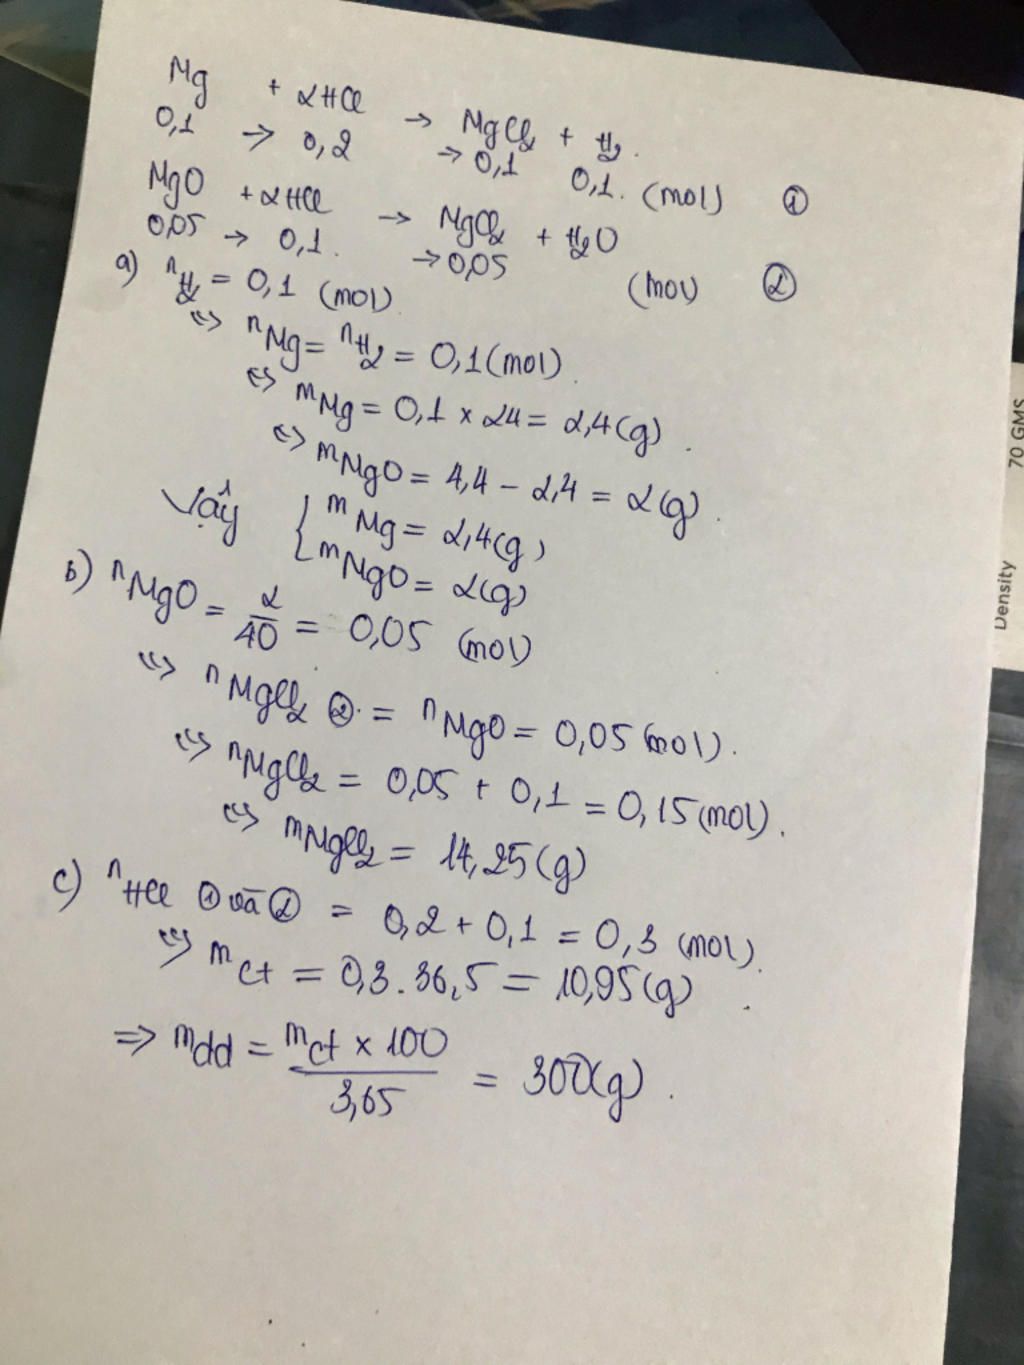 Mg + 2HCl → MgCl2 + H2.
0,1 → 0,2 → 0,1 0,1. (mol) ①
MgO + 2HCl → MgCl2 + H2O
0,05 → 0,1. → 0,05 (mol) ②
a) nH2 = 0,1 (mol)
<=> nMg = nH2 = 0,1 (mol).
<=> mMg = 0,1 x 24 = 2,4 (g).
<=> mMgO = 4,4 - 2,4 = 2 (g).
Vậy { mMg = 2,4 (g)
mMgO = 2 (g)
b) nMgO = 2/40 = 0,05 (mol)
<=> nMgCl2 ② = nMgO = 0,05 (mol).
<=> nMgCl2 = 0,05 + 0,1 = 0,15 (mol).
<=> mMgCl2 = 14,25 (g)
c) nHCl ① và ② = 0,2 + 0,1 = 0,3 (mol).
<=> mct = 0,3 . 36,5 = 10,95 (g).
=> mdd = mct x 100 / 3,65 = 300 (g).
70 GMS
Density